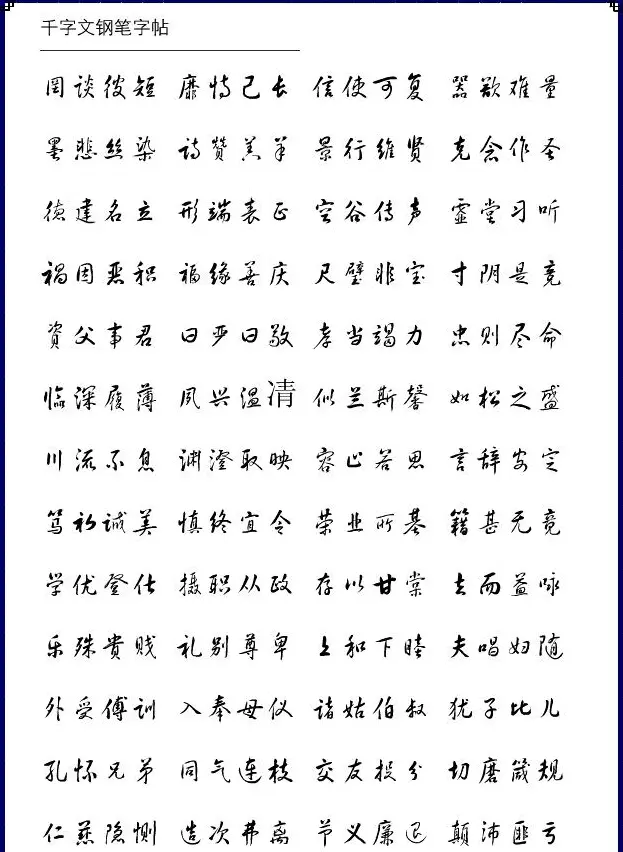 千字文钢笔字帖
罔谈彼短 靡恃己长 信使可复 器欲难量
墨悲丝染 诗赞羔羊 景行维贤 克念作圣
德建名立 形端表正 空谷传声 虚堂习听
祸因恶积 福缘善庆 尺璧非宝 寸阴是竞
资父事君 曰严曰敬 孝当竭力 忠则尽命
临深履薄 夙兴温凊 似兰斯馨 如松之盛
川流不息 渊澄取映 容止若思 言辞安定
笃初诚美 慎终宜令 荣业所基 籍甚无竟
学优登仕 摄职从政 存以甘棠 去而益咏
乐殊贵贱 礼别尊卑 上和下睦 夫唱妇随
外受傅训 入奉母仪 诸姑伯叔 犹子比儿
孔怀兄弟 同气连枝 交友投分 切磨箴规
仁慈隐恻 造次弗离 节义廉退 颠沛匪亏